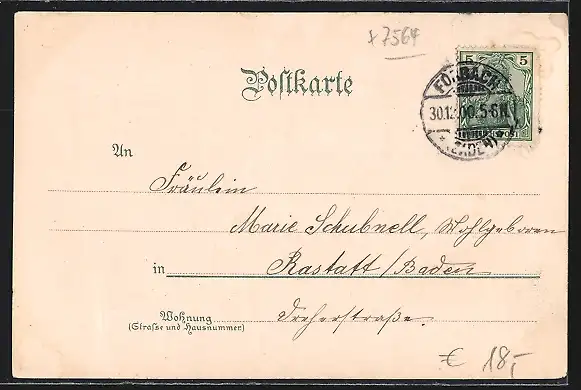 x7564
5 5
FORBACH
30.12.00.5-6N
(BADEN)
Postkarte
An
Fräulein
Marie Schubnell, Wohlgeboren
in Rastatt / Baden
Wohnung Dreherstraße.
(Straße und Hausnummer)
€ 18,-